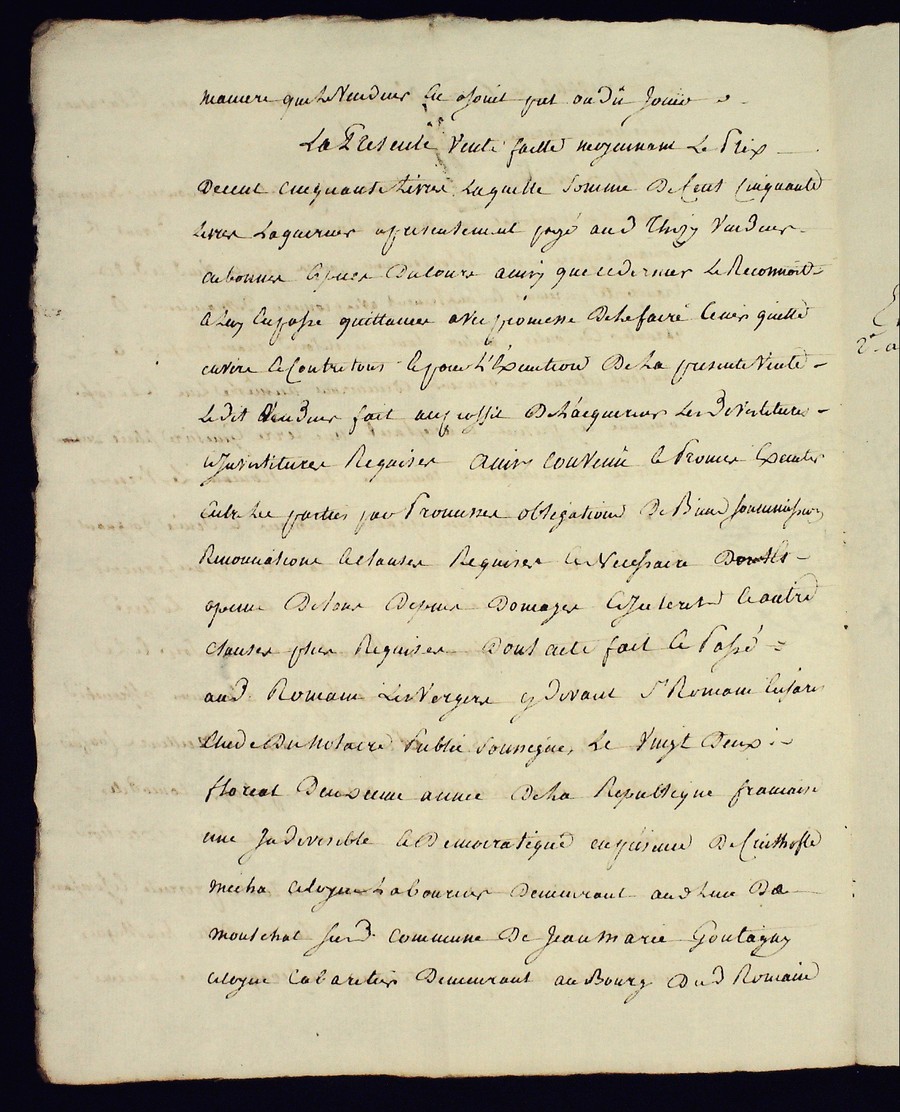 maniere que le Vendeur En Jouit put ou dû Jouir
La Presente Vente faitte moyennant Le Prix
De cent cinquante Livres Laquelle Somme De Cent Cinquante
Livres Lacquereur a presentement payé aud Thizy Vendeur
en bonnes Espece Du Cours ainsy que ce dernier Le Reconnoit
Et Luy En passe quittance avec promesse De Le faire tenir quitte
envers Et Contre tous Et pour L'Execution De La presente Vente
Le dit Vendeur fait au proffit De L'acquereur Les Devestitures
Investitures Requises Ainsy Convenu Et Promis Executer
Entre Les parties par Promesses obligations De Biens soumissions
Renonciations Et Clauses Requises Et Necessaire
a peine De tous Depens Domages Et Interets Et autre
Clauses plus Requises Dont acte fait Et Passé
aud Romain Les Vergers cy Devant St Romain En
Du Notaire Public Soussigné, Le Vingt Deux
floreal Deuxieme année De La Republique francaise
une Indivisible Et Democratique en presence De
citoyen Laboureur Demeurant au Lieu De
Montchat sud. Commune De Jean Marie Goutagny
citoyen Cabaretier Demeurant au Bourg Dud Romain